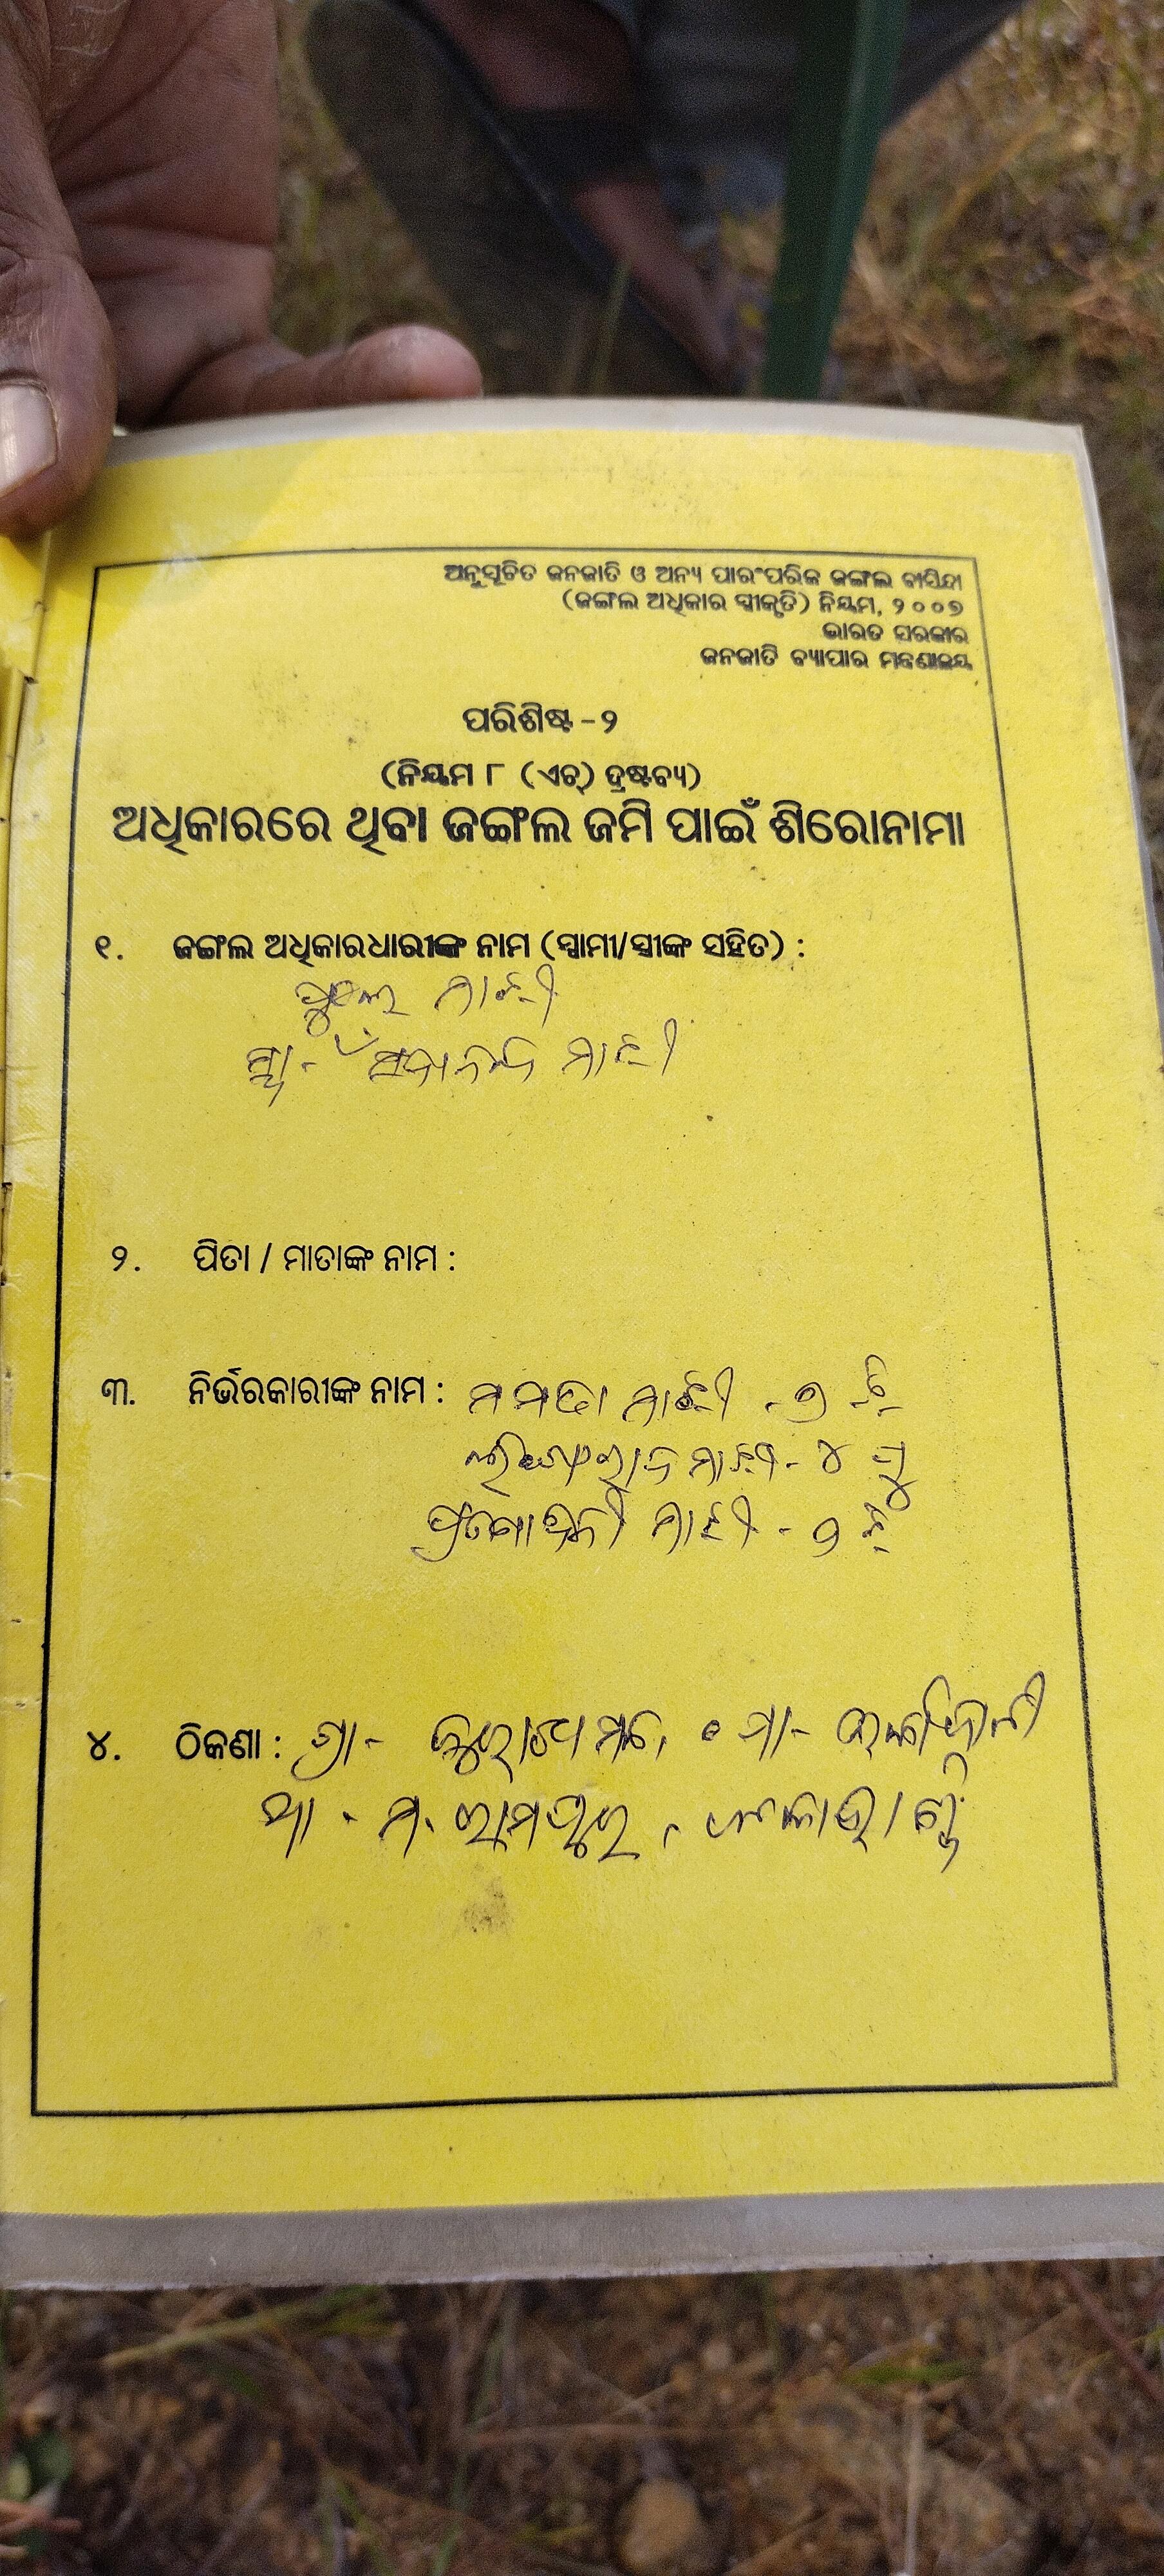 ଅନୁସୂଚିତ ଜନଜାତି ଓ ଅନ୍ୟ ପାରଂପରିକ ଜଙ୍ଗଲ ବାସିନ୍ଦା
(ଜଙ୍ଗଲ ଅଧିକାର ସ୍ୱୀକୃତି) ନିୟମ, ୨୦୦୭
ଭାରତ ସରକାର
ଜନଜାତି ବ୍ୟାପାର ମନ୍ତ୍ରଣାଳୟ
ପରିଶିଷ୍ଟ -୨
(ନିୟମ ୮ (ଏଚ୍) ଦ୍ରଷ୍ଟବ୍ୟ)
ଅଧିକାରରେ ଥିବା ଜଙ୍ଗଲ ଜମି ପାଇଁ ଶିରୋନାମା
୧. ଜଙ୍ଗଲ ଅଧିକାରଧାରୀଙ୍କ ନାମ (ସ୍ୱାମୀ/ସ୍ତ୍ରୀଙ୍କ ସହିତ) :
ମାଝୀ
ମାଝୀ
୨. ପିତା / ମାତାଙ୍କ ନାମ :
୩. ନିର୍ଭରକାରୀଙ୍କ ନାମ : ମମତା ମାଝୀ - ୭ ଝି
ମାଝୀ - ୪ ପୁ
ମାଝୀ - ୨ ଝି
୪. ଠିକଣା : ଗ୍ରା-
ମ. ରାମପୁର, କଳାହାଣ୍ଡି